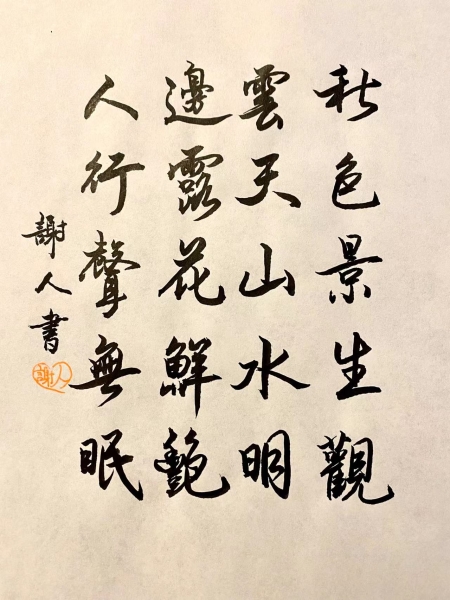 秋色景生觀
雲天山水明
邊露花鮮艷
人行聲無眠
謝人書
謝人